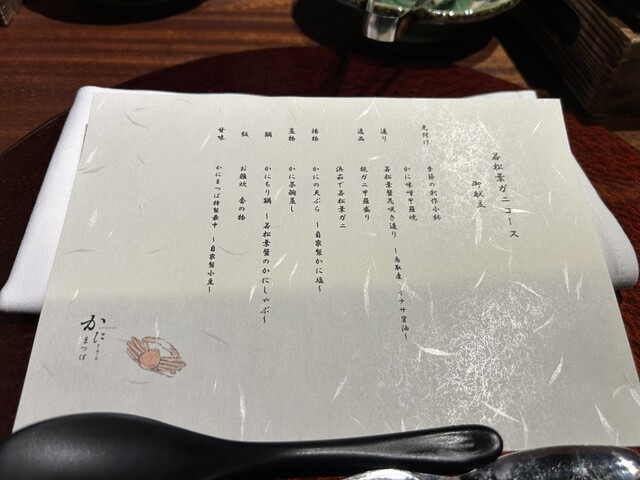 若松葉ガニコース
御献立
先付け 季節の創作小鉢
かに味噌甲羅焼
造り 若松葉蟹花咲き造り ~鳥取産 イナサ醤油~
逸品 親ガニ甲羅盛り
浜茹で若松葉ガニ
揚物 かにの天ぷら ~自家製かに塩~
蒸物 かに茶碗蒸し
鍋 かにちり鍋 ~若松葉蟹のかにしゃぶ~
飯 お雑炊 香の物
甘味 かにまつば特製最中 ~自家製小豆~
かに
まつば